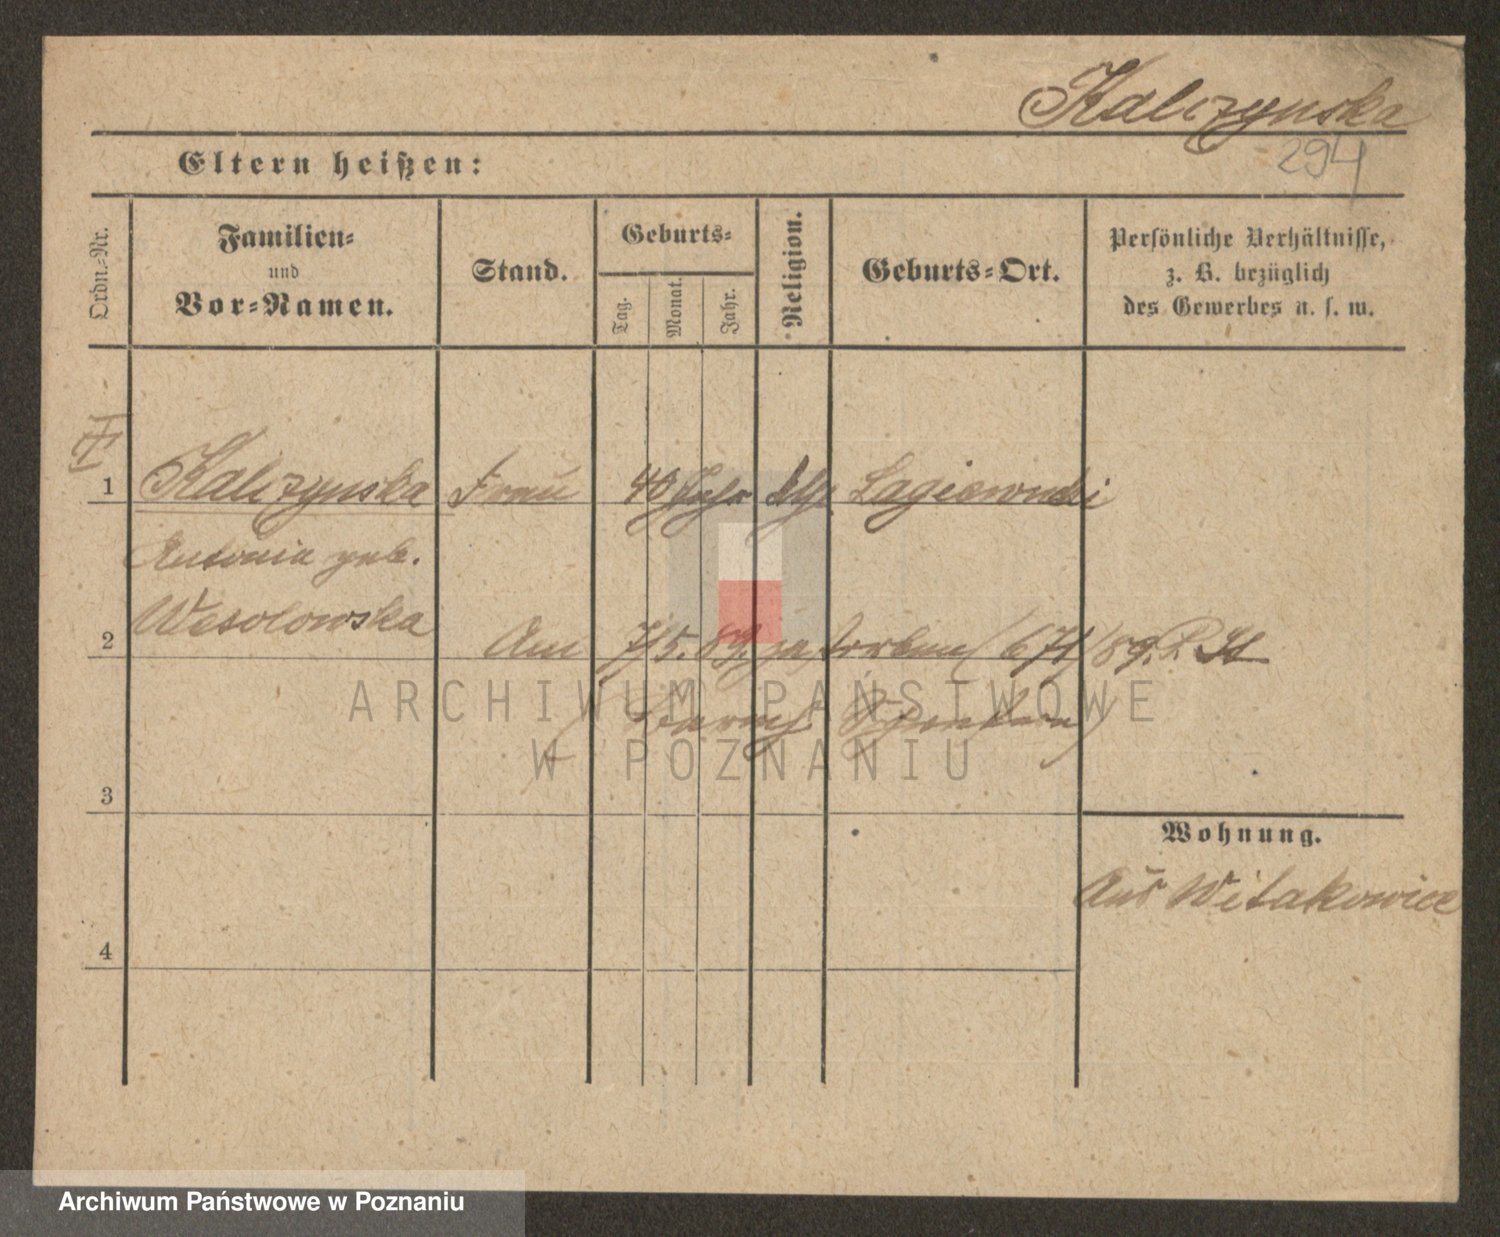 Kalczynska
294
Eltern heißen:
Ordn.-Nr.
Familien-
und
Vor-Namen.
Stand.
Geburts-
Tag.
Monat.
Jahr.
Religion.
Geburts-Ort.
Persönliche Verhältnisse,
z. B. bezüglich
des Gewerbes u. s. w.
1 Kalczynska Frau 40 Jahr kth. Lagiewniki
Antonia geb.
Wesolowska
2 Am 7/5. 89. gestorben (671/89. P. St
3
Wohnung.
Aus Witakowice
4
ARCHIWUM PAŃSTWOWE
W POZNANIU
Archiwum Państwowe w Poznaniu